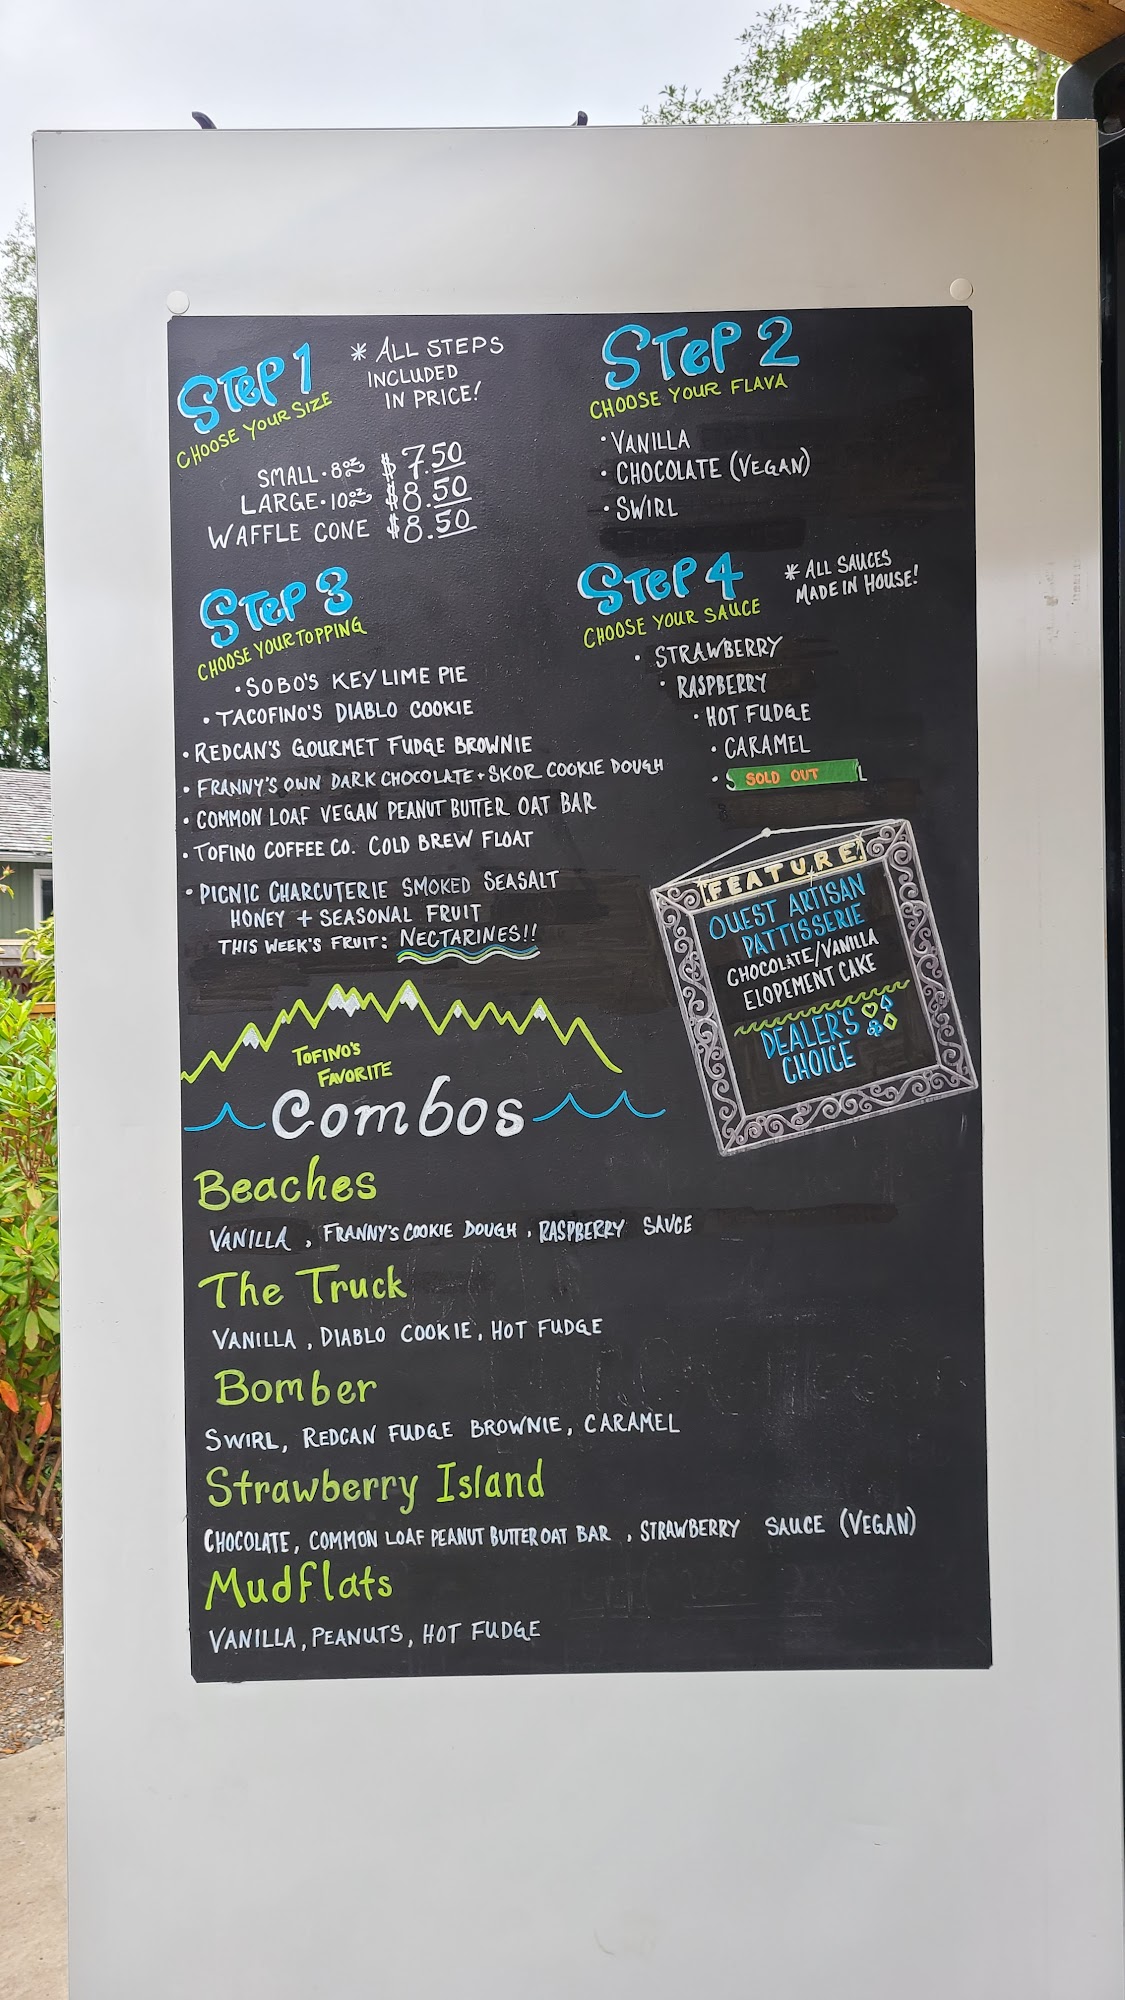 STEP 1
CHOOSE YOUR SIZE
* ALL STEPS
INCLUDED
IN PRICE!
SMALL • 8oz $7.50
LARGE • 10oz $8.50
WAFFLE CONE $8.50
STEP 2
CHOOSE YOUR FLAVA
• VANILLA
• CHOCOLATE (VEGAN)
• SWIRL
STEP 3
CHOOSE YOUR TOPPING
• SOBO'S KEY LIME PIE
• TACOFINO'S DIABLO COOKIE
• REDCAN'S GOURMET FUDGE BROWNIE
• FRANNY'S OWN DARK CHOCOLATE + SKOR COOKIE DOUGH
• COMMON LOAF VEGAN PEANUT BUTTER OAT BAR
• TOFINO COFFEE CO. COLD BREW FLOAT
• PICNIC CHARCUTERIE SMOKED SEASALT
HONEY + SEASONAL FRUIT
THIS WEEK'S FRUIT: NECTARINES!!
STEP 4
CHOOSE YOUR SAUCE
* ALL SAUCES
MADE IN HOUSE!
• STRAWBERRY
• RASPBERRY
• HOT FUDGE
• CARAMEL
• SOLD OUT
FEATURE
OUEST ARTISAN
PATTISSERIE
CHOCOLATE/VANILLA
ELOPEMENT CAKE
DEALER'S
CHOICE
TOFINO'S
FAVORITE
Combos
Beaches
VANILLA, FRANNY'S COOKIE DOUGH, RASPBERRY SAUCE
The Truck
VANILLA, DIABLO COOKIE, HOT FUDGE
Bomber
SWIRL, REDCAN FUDGE BROWNIE, CARAMEL
Strawberry Island
CHOCOLATE, COMMON LOAF PEANUT BUTTER OAT BAR, STRAWBERRY SAUCE (VEGAN)
Mudflats
VANILLA, PEANUTS, HOT FUDGE